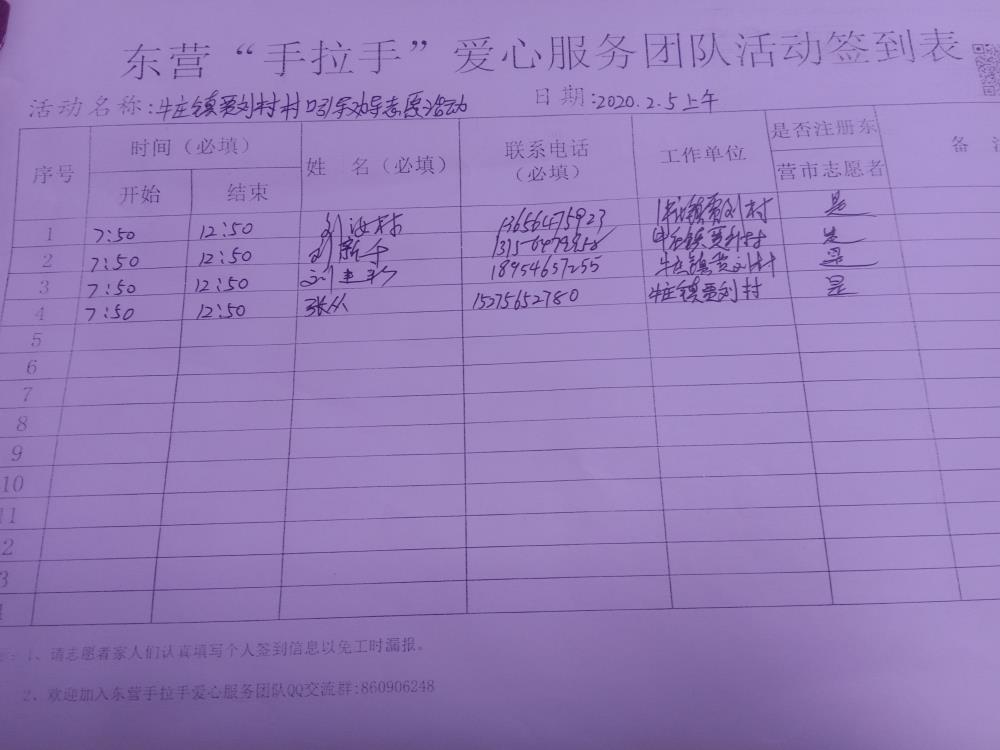 东营“手拉手”爱心服务团队活动签到表
活动名称:牛庄镇贾刘村村口引导劝导志愿活动 日期:2020.2.5上午
序号 时间（必填） 姓 名（必填） 联系电话（必填） 工作单位 是否注册东营市志愿者 备
开始 结束
1 7:50 12:50 刘汝林 13656475923 牛庄镇贾刘村 是
2 7:50 12:50 刘新千 牛庄镇贾刘村 是
3 7:50 12:50 刘 18954657255 牛庄镇贾刘村 是
4 7:50 12:50 张从 15275652780 牛庄镇贾刘村 是
5
6
7
8
9
10
11
2
3
1、请志愿者家人们认真填写个人签到信息以免工时漏报。
2、欢迎加入东营手拉手爱心服务团队QQ交流群:860906248